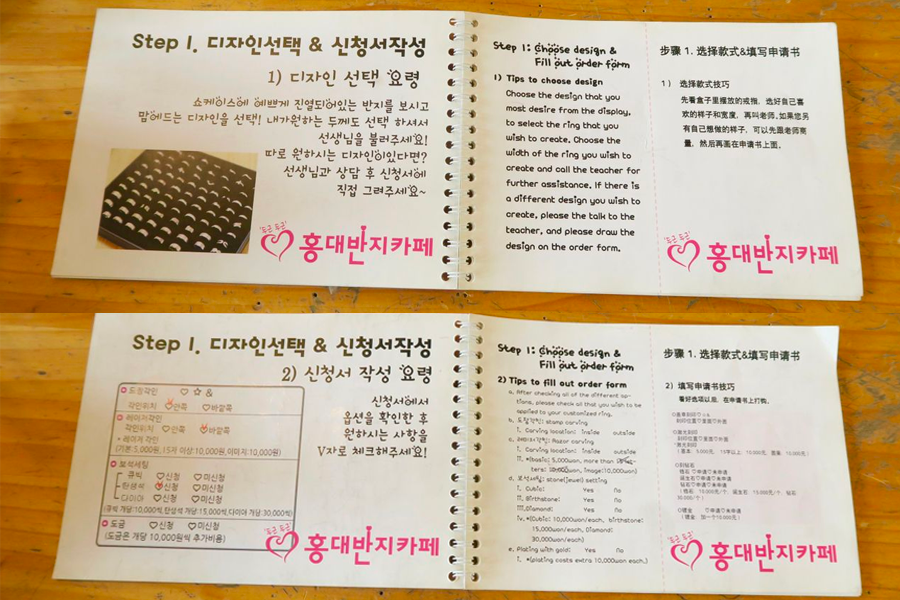 Step 1. 디자인선택 & 신청서작성
1) 디자인 선택 요령
쇼케이스에 예쁘게 진열되어있는 반지를 보시고
맘에드는 디자인을 선택! 내가원하는 두께도 선택 하셔서
선생님을 불러주세요!
따로 원하시는 디자인이있다면?
선생님과 상담 후 신청서에
직접 그려주세요~
"두근 두근"
홍대반지카페
Step 1: Choose design &
Fill out order form
1) Tips to choose design
Choose the design that you
most desire from the display,
to select the ring that you
wish to create. Choose the
width of the ring you wish to
create and call the teacher for
further assistance. If there is
a different design you wish to
create, please the talk to the
teacher, and please draw the
design on the order form.
步骤 1. 选择款式&填写申请书
1） 选择款式技巧
先看盒子里摆放的戒指，选好自己喜
欢的样子和宽度，再叫老师,如果您另
有自己想做的样子，可以先跟老师商
量，然后再画在申请书上面。
"두근 두근"
홍대반지카페
Step 1. 디자인선택 & 신청서작성
2) 신청서 작성 요령
도장각인 ♡ ☆ &
각인위치 ♡안쪽 ♡바깥쪽
레이저각인
각인위치 ♡안쪽 ♡바깥쪽
* 레이저 각인
(기본:5,000원, 15자 이상:10,000원, 이미지:10,000원)
보석세팅
큐빅 ♡신청 ♡미신청
탄생석 ♡신청 ♡미신청
다이아 ♡신청 ♡미신청
(큐빅 개당:10,000원,탄생석 개당:15,000원,다이아 개당:30,000원)
도금 ♡신청 ♡미신청
(도금은 개당 10,000원씩 추가비용)
신청서에서
옵션을 확인한 후
원하시는 사항을
V자로 체크해주세요!
"두근 두근"
홍대반지카페
Step 1: Choose design &
Fill out order form
2) Tips to fill out order form
a. After checking all of the different op-
tions, please check all that you wish to be
applied to your customized ring.
b. 도장각인: stamp carving
i. Carving location: inside outside
c. 레이저각인: Razor carving
i. Carving location: inside outside
ii. *(basic) 5,000won, more than
ters: 10,000won, image(10,000won)
d. 보석세팅: stone(jewel) setting
i. Cubic: Yes No
ii. Birthstone: Yes No
iii. Diamond: Yes No
iv. *(Cubic: 10,000won/each, birthstone:
15,000won/each, Diamond:
30,000won/each)
e. Plating with gold: Yes No
i. *(plating costs extra 10,000won each.)
步骤 1. 选择款式&填写申请书
2） 填写申请书技巧
看好选项以后，在申请书上打钩。
刻印位置♡里面♡外面
刻印位置♡里面♡外面
诞生石♡申请♡未申请
钻石♡申请♡未申请
"두근 두근"
홍대반지카페